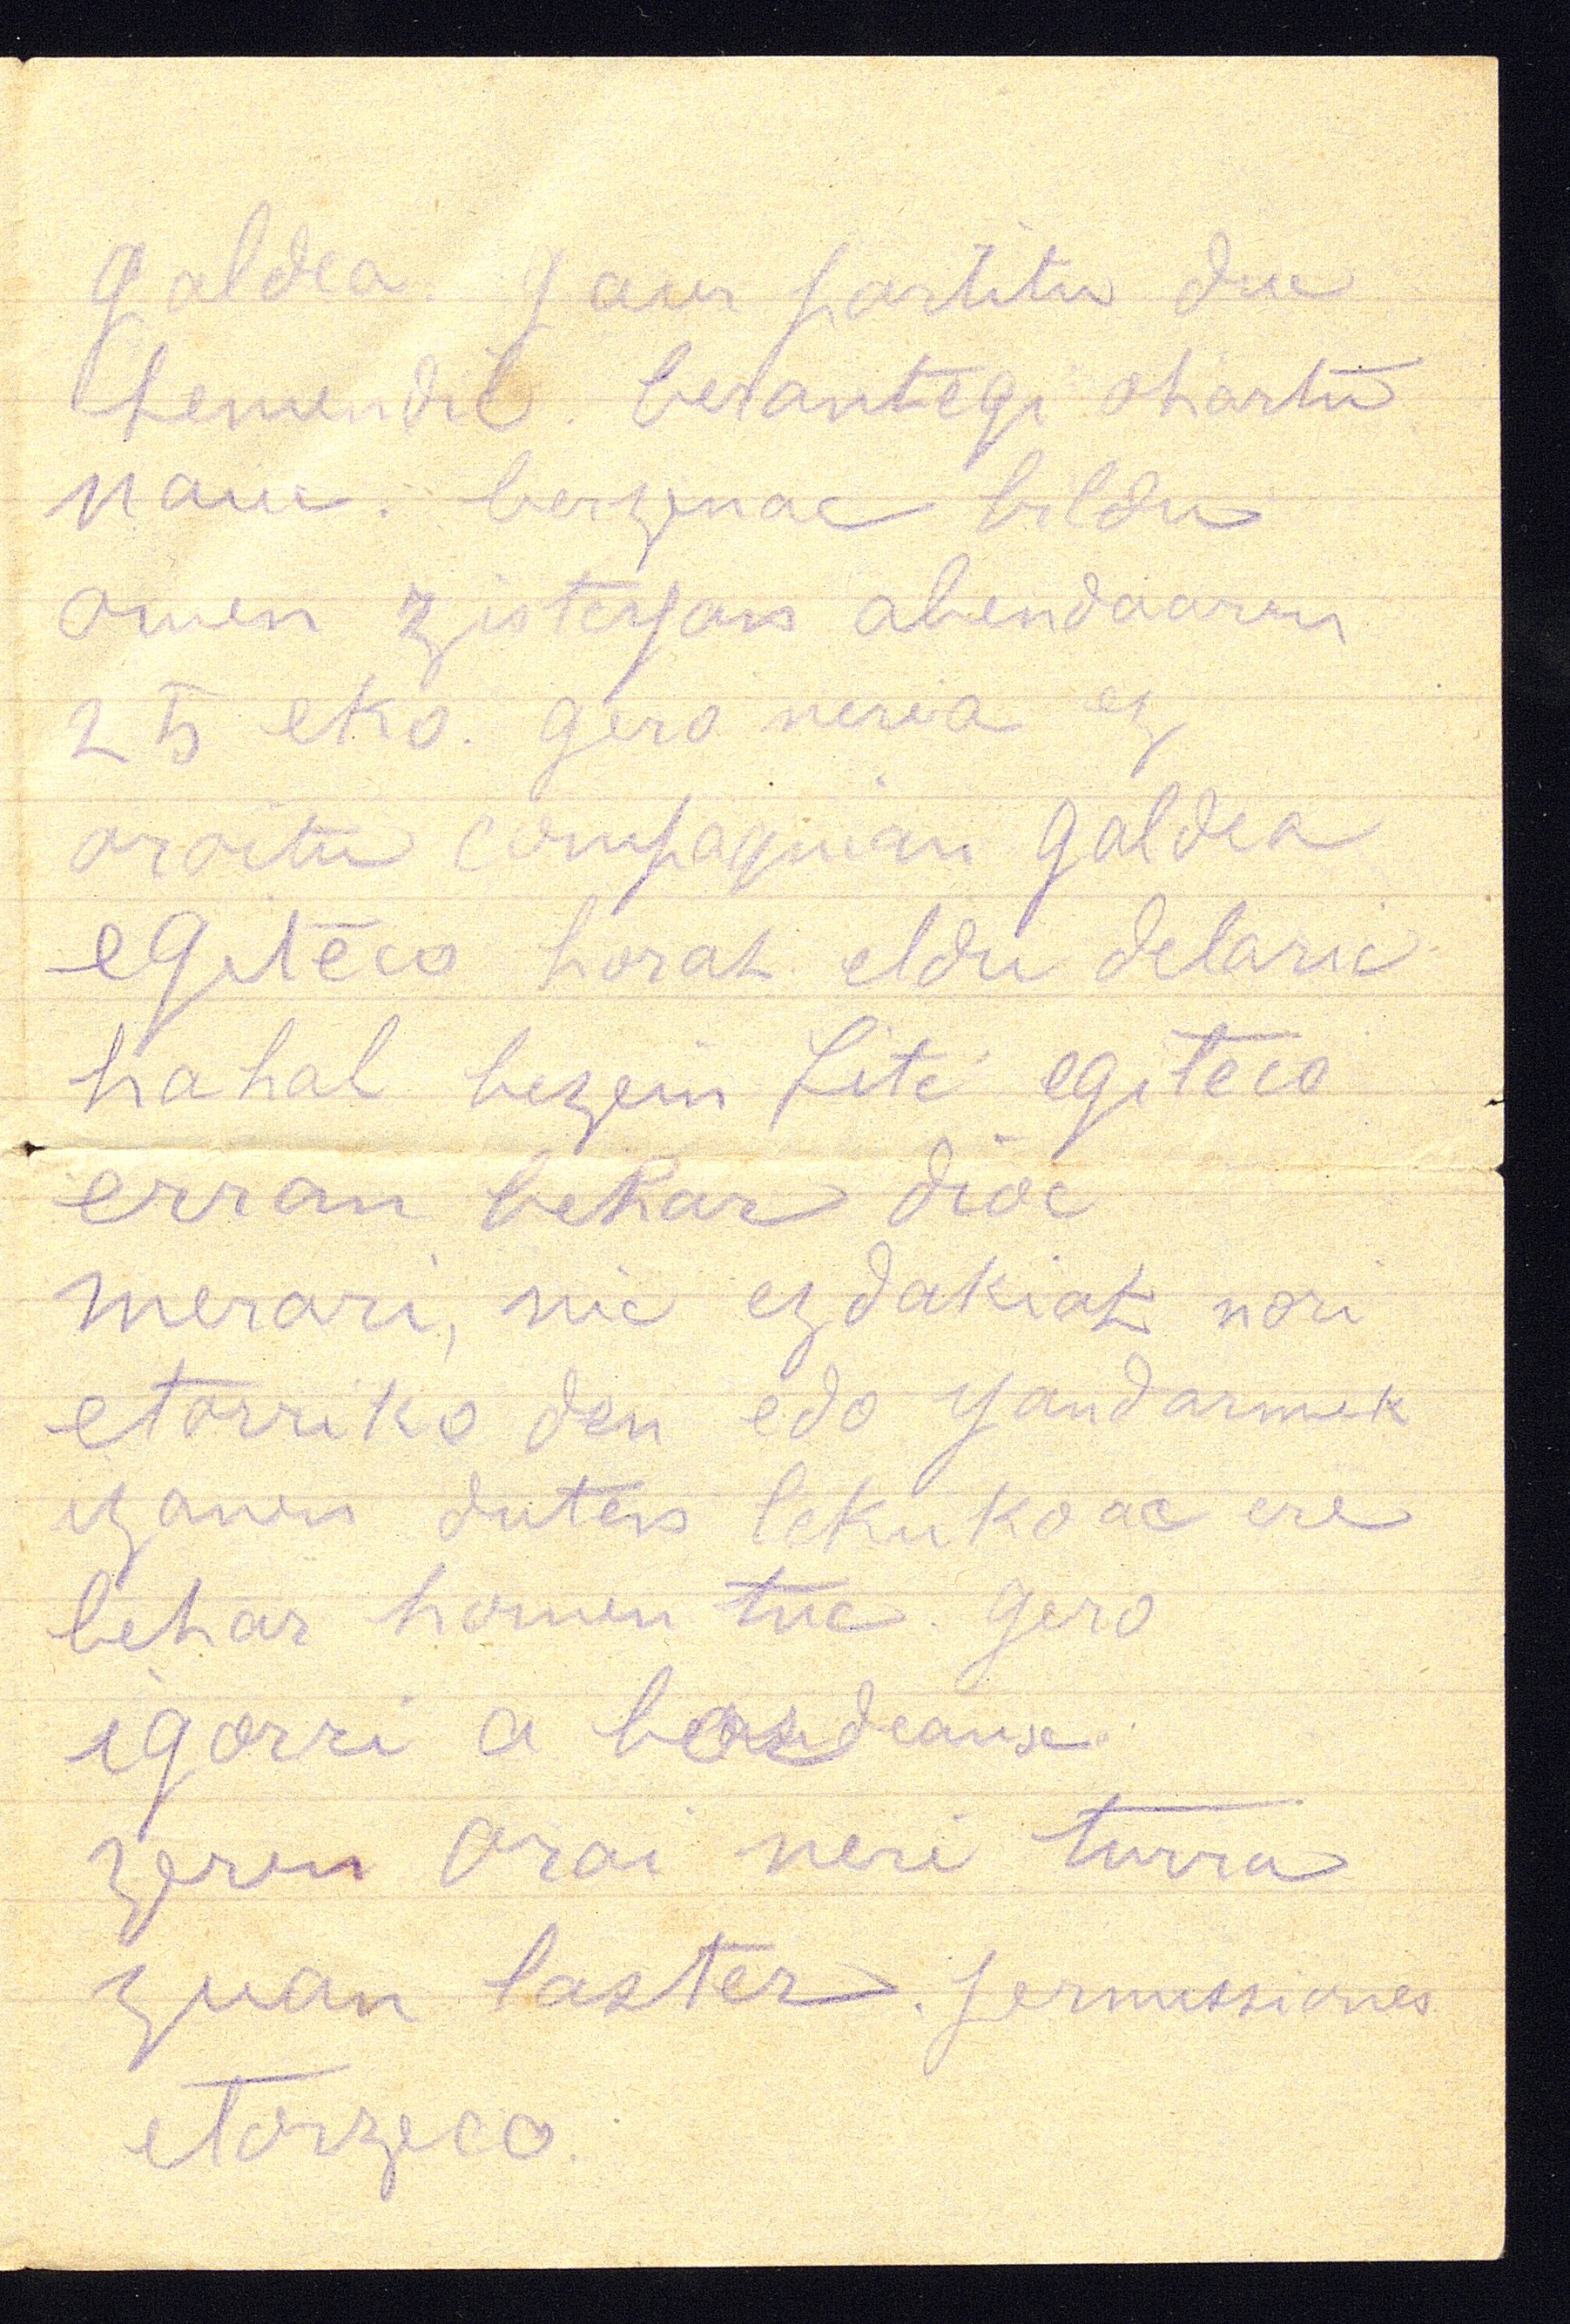 galdea. gaur partitu duc
hemendic. berantegi ohartu
nauc. berzenac bildu
omen zisteyan abendaaren
25 eko. gero neria ez
oroitu compagnian galdea
egiteco horat eldu delaric
hahal bezein Lite egiteco
erran behar dioc
merari, nic ez dakiat nori
etorriko den edo yandarmek
izanen duten lekukoac ere
behar homen tuc. gero
igorri a bordeause.
zeren orai neri turra
zuan laster. permissiones
etorzeco.